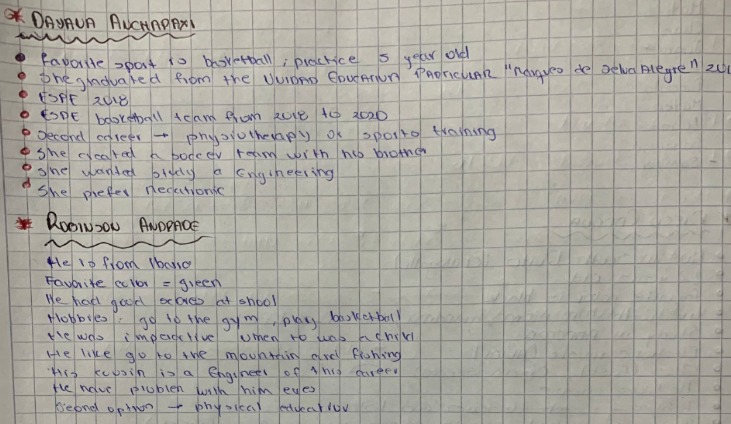 * DAYANA ANCHAPAXI
• Favorite sport is basketball, practice 5 year old
• She graduated from the UNIDAD EDUCATION PARTICULAR "Marques de Selva Alegre" 201
• ESPE 2018
• ESPE basketball team from 2018 to 2020
• Second career → physiotherapy or sports training
• She created a soccer team with his brother
• She wanted study a Engineering
• She prefer
* ROBINSON ANDRADE
He is from Ibarra
Favorite color = green
He had good scores at shool
Hobbies: go to the gym, play basketball
He was imperactive wmen to was a child
He like go to the mountain and fishing
His cousin is a Engineer of this career
He have problem with him eyes
Second option → physical education